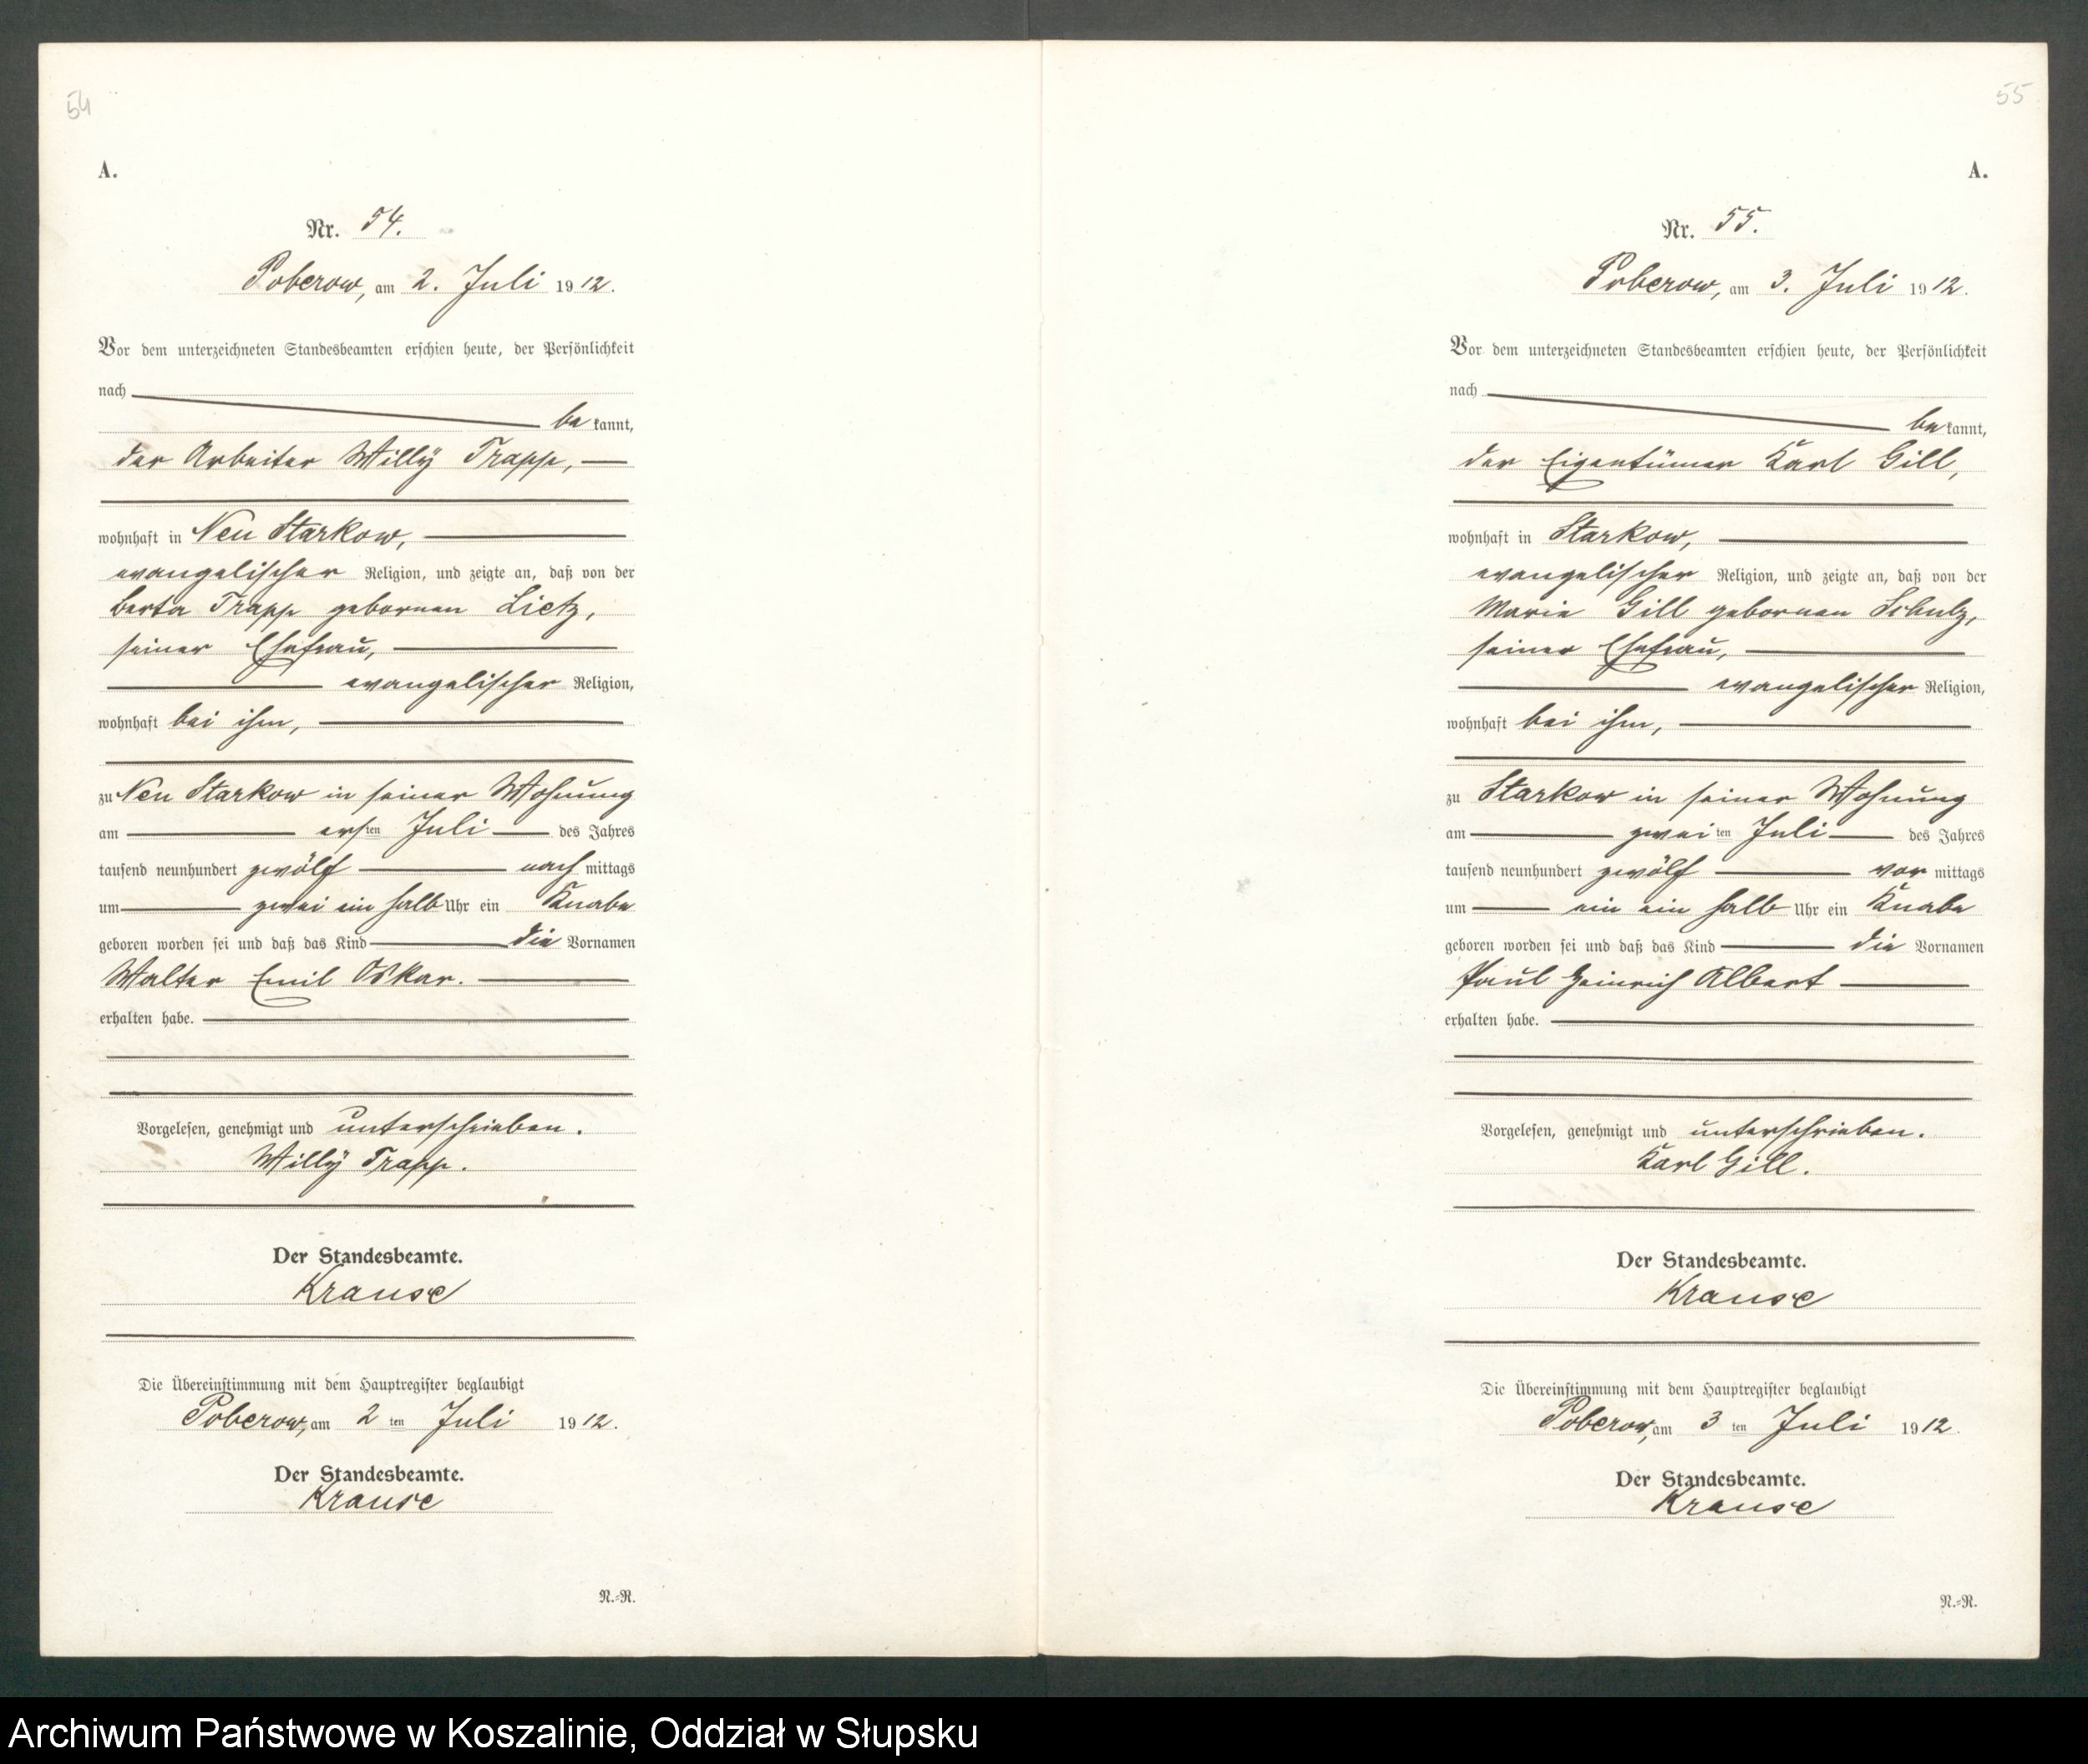 54
A.
Nr. 54.
Poberow, am 2. Juli 1912.
Vor dem unterzeichneten Standesbeamten erschien heute, der Persönlichkeit
nach
bekannt,
der Arbeiter Willÿ Trapp,
wohnhaft in Neu Starkow,
evangelischer Religion, und zeigte an, daß von der
Berta Trapp gebornen Lietz,
seiner Ehefrau,
evangelischer Religion,
wohnhaft bei ihm,
zu Neu Starkow in seiner Wohnung
am ersten Juli des Jahres
tausend neunhundert zwölf nachmittags
um zwei ein halb Uhr ein Knabe
geboren worden sei und daß das Kind die Vornamen
Walter Emil Oskar.
erhalten habe.
Vorgelesen, genehmigt und unterschrieben.
Willÿ Trapp.
Der Standesbeamte.
Krause
Die Übereinstimmung mit dem Hauptregister beglaubigt
Poberow, am 2ten Juli 1912.
Der Standesbeamte.
Krause
N.-R.
55
A.
Nr. 55.
Poberow, am 3. Juli 1912.
Vor dem unterzeichneten Standesbeamten erschien heute, der Persönlichkeit
nach
bekannt,
der Eigentümer Karl Gill,
wohnhaft in Starkow,
evangelischer Religion, und zeigte an, daß von der
Marie Gill gebornen Schulz,
seiner Ehefrau,
evangelischer Religion,
wohnhaft bei ihm,
zu Starkow in seiner Wohnung
am zweiten Juli des Jahres
tausend neunhundert zwölf vormittags
um ein ein halb Uhr ein Knabe
geboren worden sei und daß das Kind die Vornamen
Paul Heinrich Albert
erhalten habe.
Vorgelesen, genehmigt und unterschrieben.
Karl Gill.
Der Standesbeamte.
Krause
Die Übereinstimmung mit dem Hauptregister beglaubigt
Poberow, am 3ten Juli 1912.
Der Standesbeamte.
Krause
N.-R.
Archiwum Państwowe w Koszalinie, Oddział w Słupsku